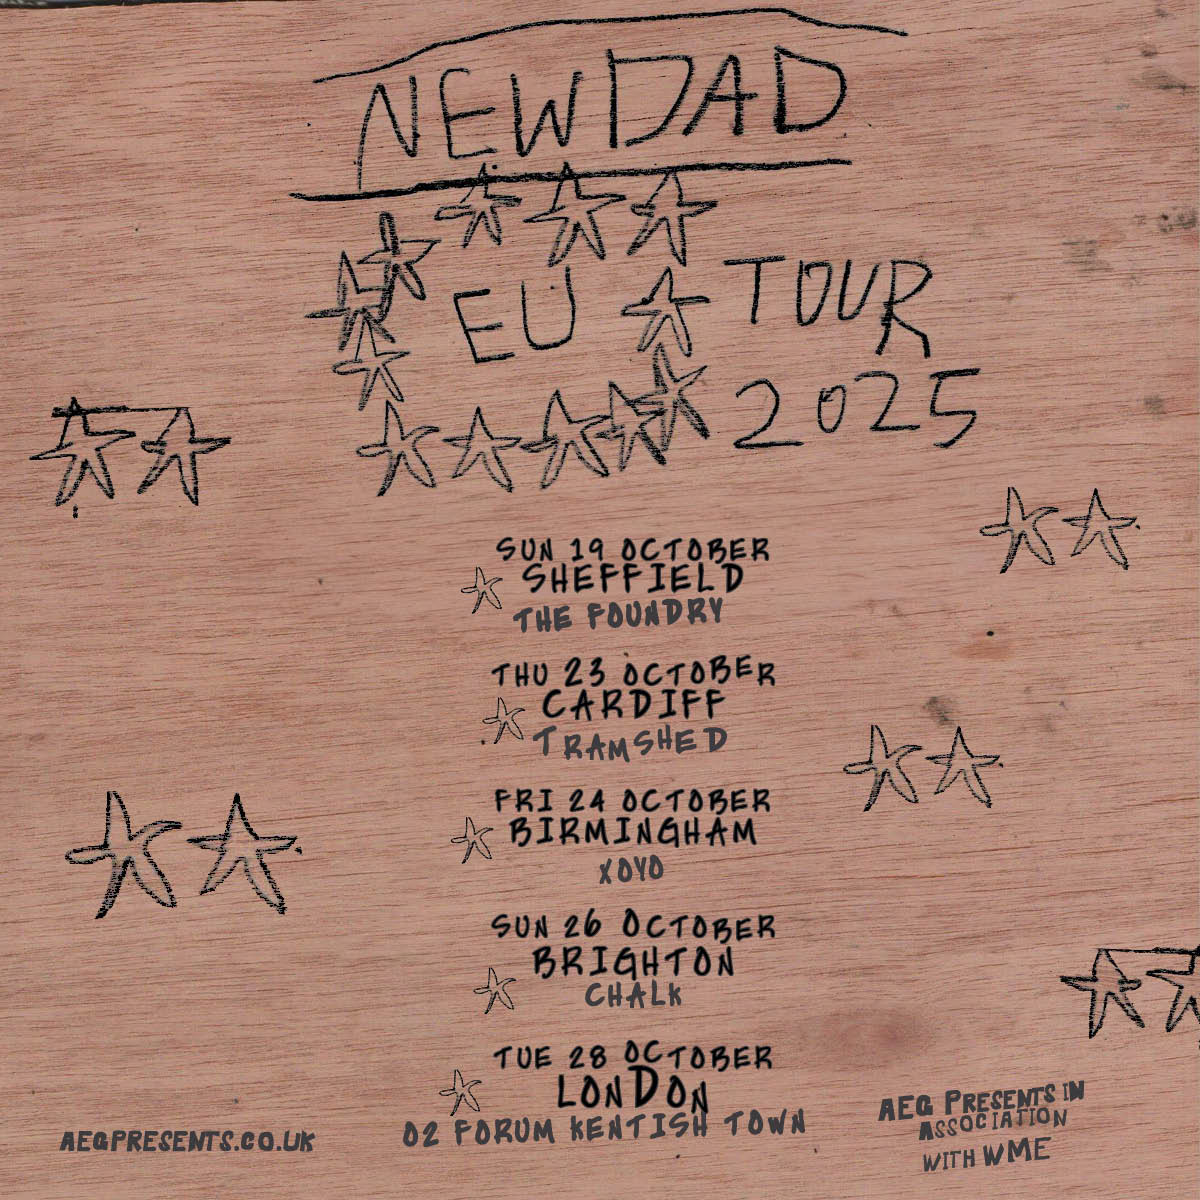 NEWDAD
EU TOUR
2025
SUN 19 OCTOBER
SHEFFIELD
THE FOUNDRY
THU 23 OCTOBER
CARDIFF
TRAMSHED
FRI 24 OCTOBER
BIRMINGHAM
XOYO
SUN 26 OCTOBER
BRIGHTON
CHALK
TUE 28 OCTOBER
LONDON
O2 FORUM KENTISH TOWN
AEGPRESENTS.CO.UK
AEG PRESENTS IN
ASSOCIATION
WITH WME